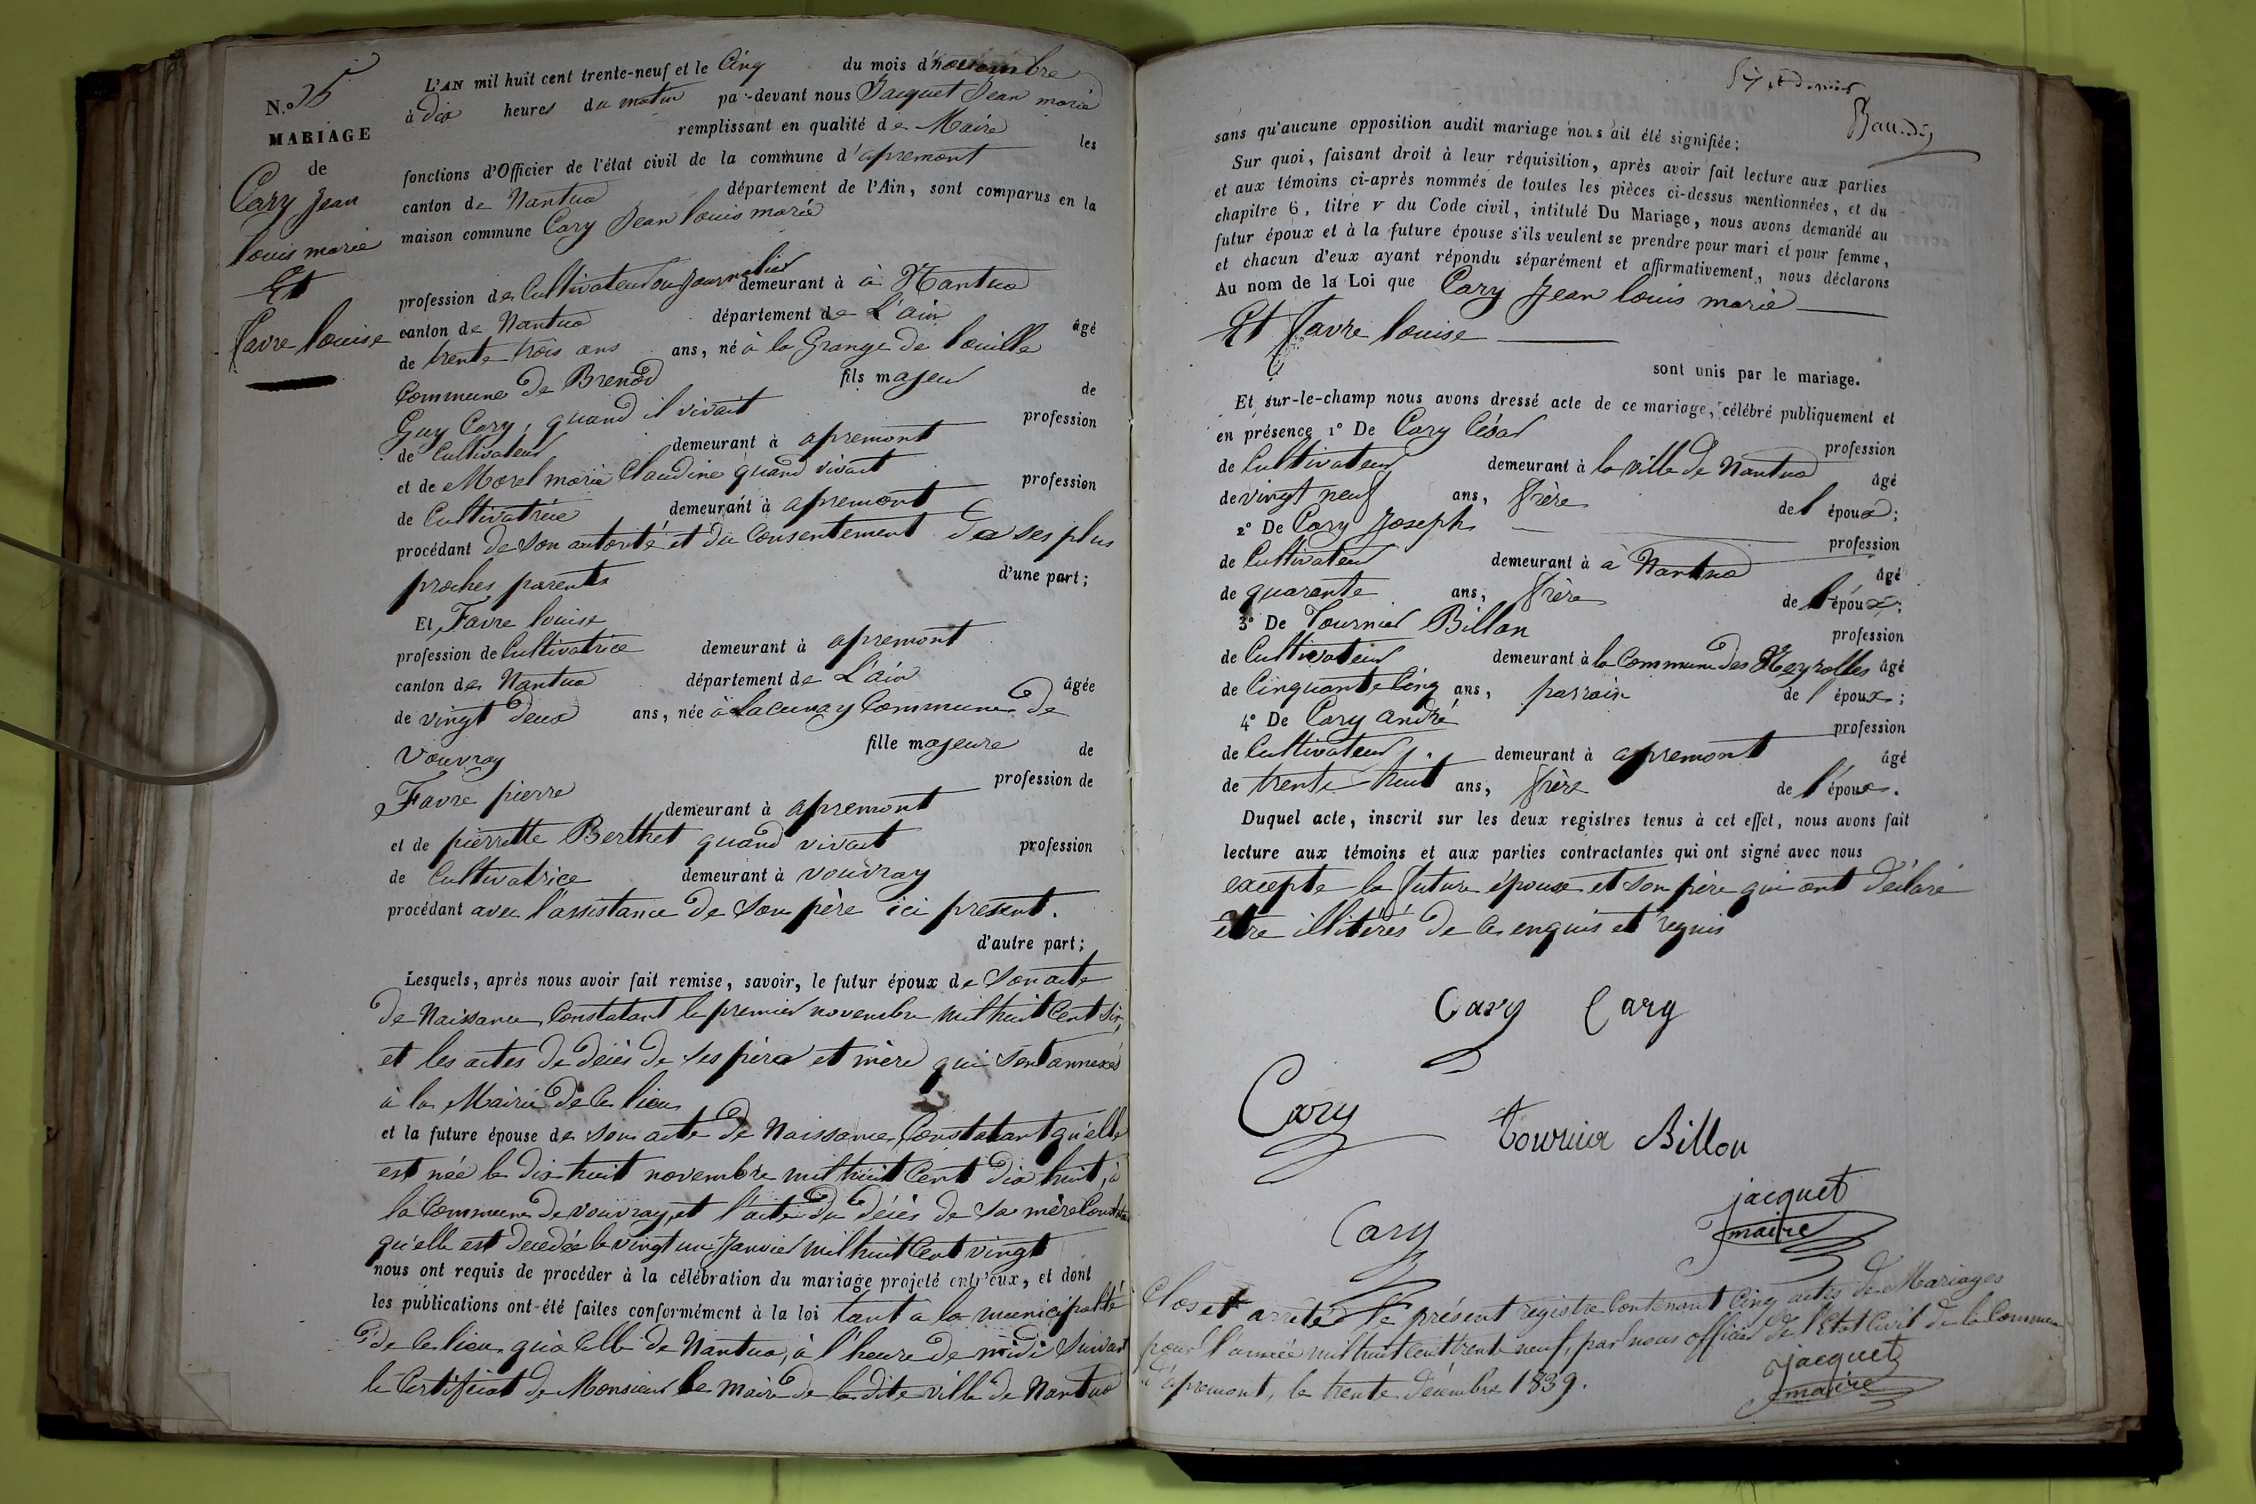 N.o 5
MARIAGE
de
Cary Jean
louis marie
Et
Favre louise
L'AN mil huit cent trente-neuf et le Cinq du mois d'novembre
à dix heures du matin par-devant nous Jacquet Jean marie
remplissant en qualité de Maire les
fonctions d'Officier de l'état civil de la commune d'apremont
canton de Nantua département de l'Ain, sont comparus en la
maison commune Cary Jean louis marie
profession de Cultivateur ou Journalier demeurant à à Nantua
canton de Nantua département de L'ain âgé
de trente trois ans ans, né à la Grange de louille
Commune de Brenod fils majeur de
Guy Cary, quand il vivait profession
de Cultivateur demeurant à apremont
et de Morel marie Claudine quand vivait profession
de Cultivatrice demeurant à apremont
procédant de son autorité et du Consentement de ses plus
proches parents d'une part;
Et Favre louise
profession de Cultivatrice demeurant à apremont
canton de Nantua département de L'ain âgée
de vingt deux ans, née à Commune de
vouvray fille majeure de
Favre pierre profession de
demeurant à apremont
et de pierrette Berthet quand vivait profession
de Cultivatrice demeurant à vouvray
procédant avec l'assistance de son père ici present.
d'autre part;
Lesquels, après nous avoir fait remise, savoir, le futur époux de son acte
de Naissance, Constatant le premier novembre mil huit Cent six,
et les actes de décès de ses père et mère qui sont annexés
à la Mairie de Ce lieu
et la future épouse de son acte de Naissance, Constatant qu'elle
est née le dix huit novembre mil huit Cent dix huit, à
la Commune de vouvray, et l'acte du décès de sa mère Constatant
qu'elle est decedée le vingt un Janvier mil huit Cent vingt
nous ont requis de procéder à la célébration du mariage projeté entr'eux, et dont
les publications ont-été faites conformément à la loi tant a la municipalité
de Ce lieu qu'à Celle de Nantua, à l'heure de midi suivant
le Certificat de Monsieur le maire de la dite ville de Nantua
Baudy
sans qu'aucune opposition audit mariage nous ait été signifiée;
Sur quoi, faisant droit à leur réquisition, après avoir fait lecture aux parties
et aux témoins ci-après nommés de toutes les pièces ci-dessus mentionnées, et du
chapitre 6, titre v du Code civil, intitulé Du Mariage, nous avons demandé au
futur époux et à la future épouse s'ils veulent se prendre pour mari et pour femme,
et chacun d'eux ayant répondu séparément et affirmativement, nous déclarons
Au nom de la Loi que Cary Jean louis marie
Et favre louise
sont unis par le mariage.
Et sur-le-champ nous avons dressé acte de ce mariage, célébré publiquement et
en présence 1° De Cary César profession
de Cultivateur demeurant à la ville de Nantua âgé
de vingt neuf ans, frère de l'époux;
2° De Cary Joseph profession
de Cultivateur demeurant à à Nantua âgé
de quarante ans, frère de l'époux;
3° De Tournier Billon profession
de Cultivateur demeurant à la Commune des Neyrolles âgé
de Cinquante Cinq ans, parrain de l'époux;
4° De Cary andré profession
de Cultivateur demeurant à apremont âgé
de trente huit ans, frère de l'époux.
Duquel acte, inscrit sur les deux registres tenus à cet effet, nous avons fait
lecture aux témoins et aux parties contractantes qui ont signé avec nous
excepte la future épouse et son père qui ont déclaré
être illitérés de Ce enquis et requis
Cary Cary
Cary
Tournier Billon
Cary
jacquet
maire
Clos et arrêté le présent registre Contenant Cinq actes de Mariages
pour l'année mil huit cent trente neuf, par nous officier de l'Etat Civil de la Commune
d'apremont, le trente décembre 1839.
jacquet
maire